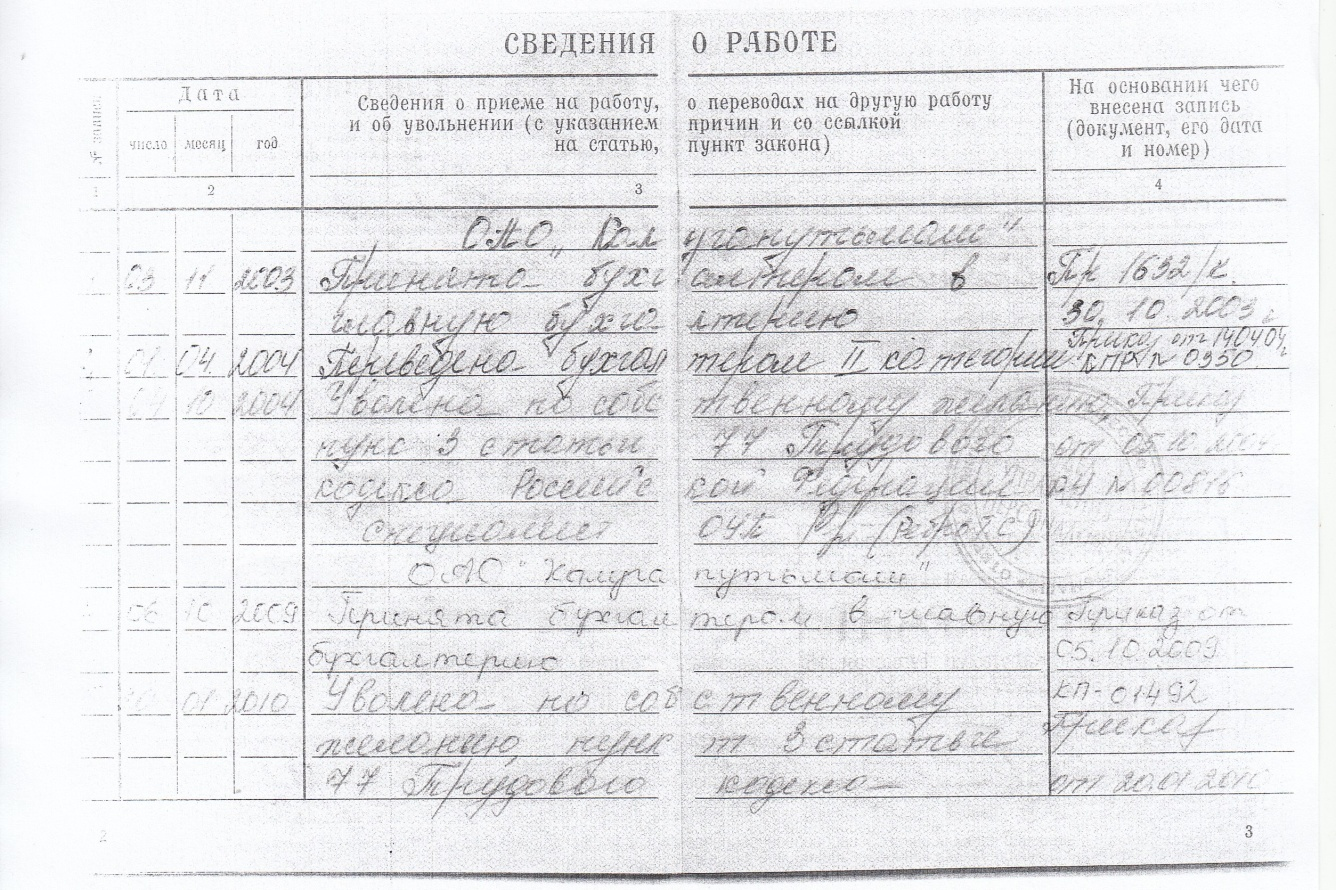 СВЕДЕНИЯ О РАБОТЕ
Дата
число месяц год
Сведения о приеме на работу, о переводах на другую работу
и об увольнении (с указанием причин и со ссылкой
на статью, пункт закона)
На основании чего
внесена запись
(документ, его дата
и номер)
1 2 3 4
ОАО „Калугапутьмаш"
03 11 2003 Принята бухгалтером в Пр 1632/к
главную бухгалтерию 30.10.2003 г
01 04 2004 Переведена бухгалтером II категории Приказ от 140404г
КПР № 0350
04 10 2004 Уволена по собственному желанию, Приказ
пункт 3 статьи 77 Трудового от 05.10.2004
кодекса Российской Федерации № 00816
Специалист ОУП
ОАО "Калугапутьмаш"
06 10 2009 Принята бухгалтером в главную Приказ от
бухгалтерию 05.10.2009
20 01 2010 Уволена по собственному КП-01492
желанию пункт 3 статьи Приказ
77 Трудового кодекса от 20.01 2010
2 3